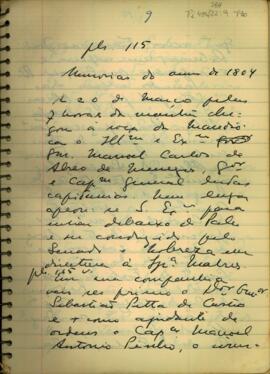 9
pls. 115
Memorias do anno de 1804
A 20 de Março pelas
7 horas da manhã che-
gou a roça da Mandio-
ca o Illmo e Exmo
Snr Manoel Carlos de
Abreo de Menezes, Gor
e Capm General destas
capitanias. Nem logar
apeou S. Exa para
entrar debaixo do Palio
e ser conduzido pelo
Senado e Nobreza em
direitura à Igra Matriz
pls. 115 v.
em sua companhia
seu primo o Dor Ouvor
Sebastião Pitta de Castro
e como ajudante de
ordens o Capm Manoel
Antonio Pinho, o